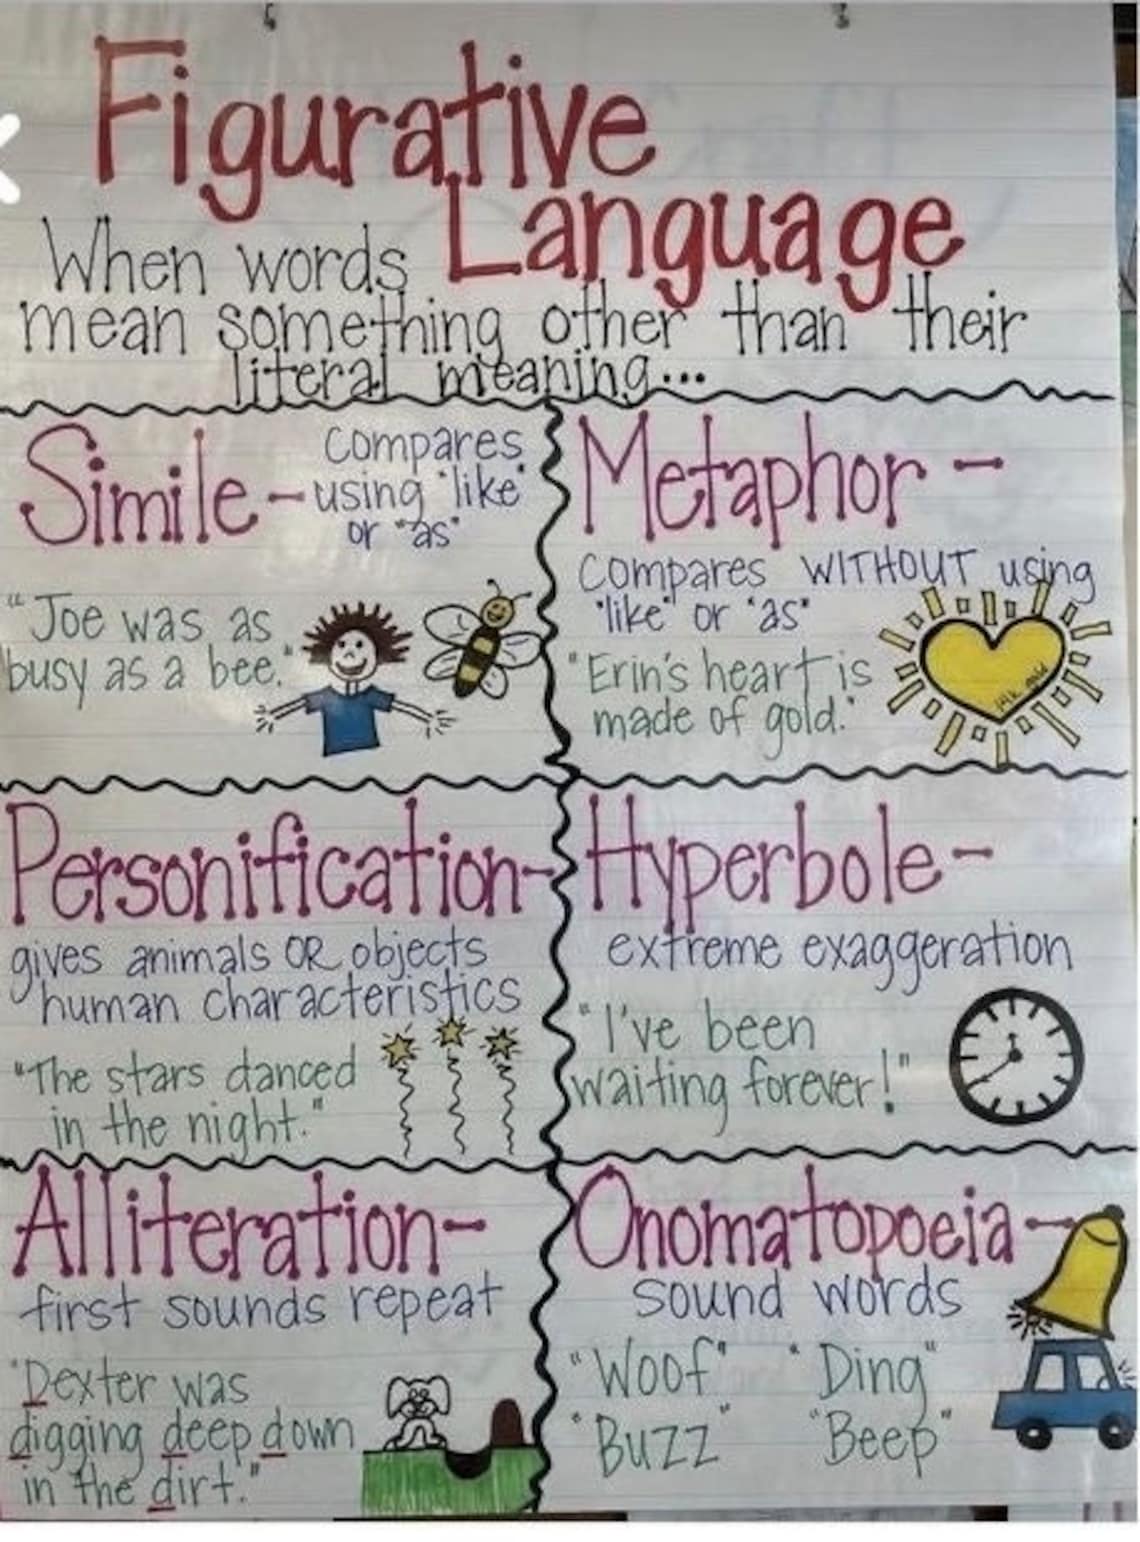 Figurative
Language
When words
mean something other than their
literal meaning...
Simile - Compares
using "like"
or "as"
"Joe was as
busy as a bee."
Metaphor -
Compares WITHOUT using
"like" or "as"
"Erin's heart is
made of gold."
14k gold
Personification-
gives animals OR objects
human characteristics
"The stars danced
in the night."
Hyperbole-
extreme exaggeration
"I've been
waiting forever!"
Alliteration-
first sounds repeat
"Dexter was
digging deep down
in the dirt."
Onomatopoeia-
sound words
"Woof" "Ding"
"Buzz" "Beep"